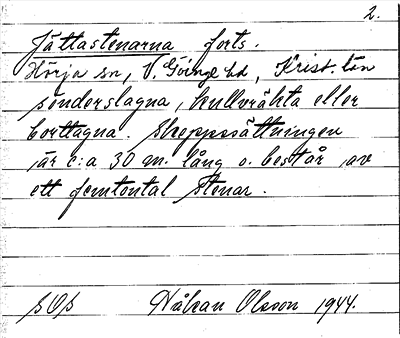 2.
Jättastenarna forts.
Hörja sn, V. Göinge hd, Krist. län
sönderslagna, kullvräkta eller
borttagna. Skeppssättningen
är c:a 30 m. lång o. består av
ett femtontal stenar.
Håkan Olsson 1944.